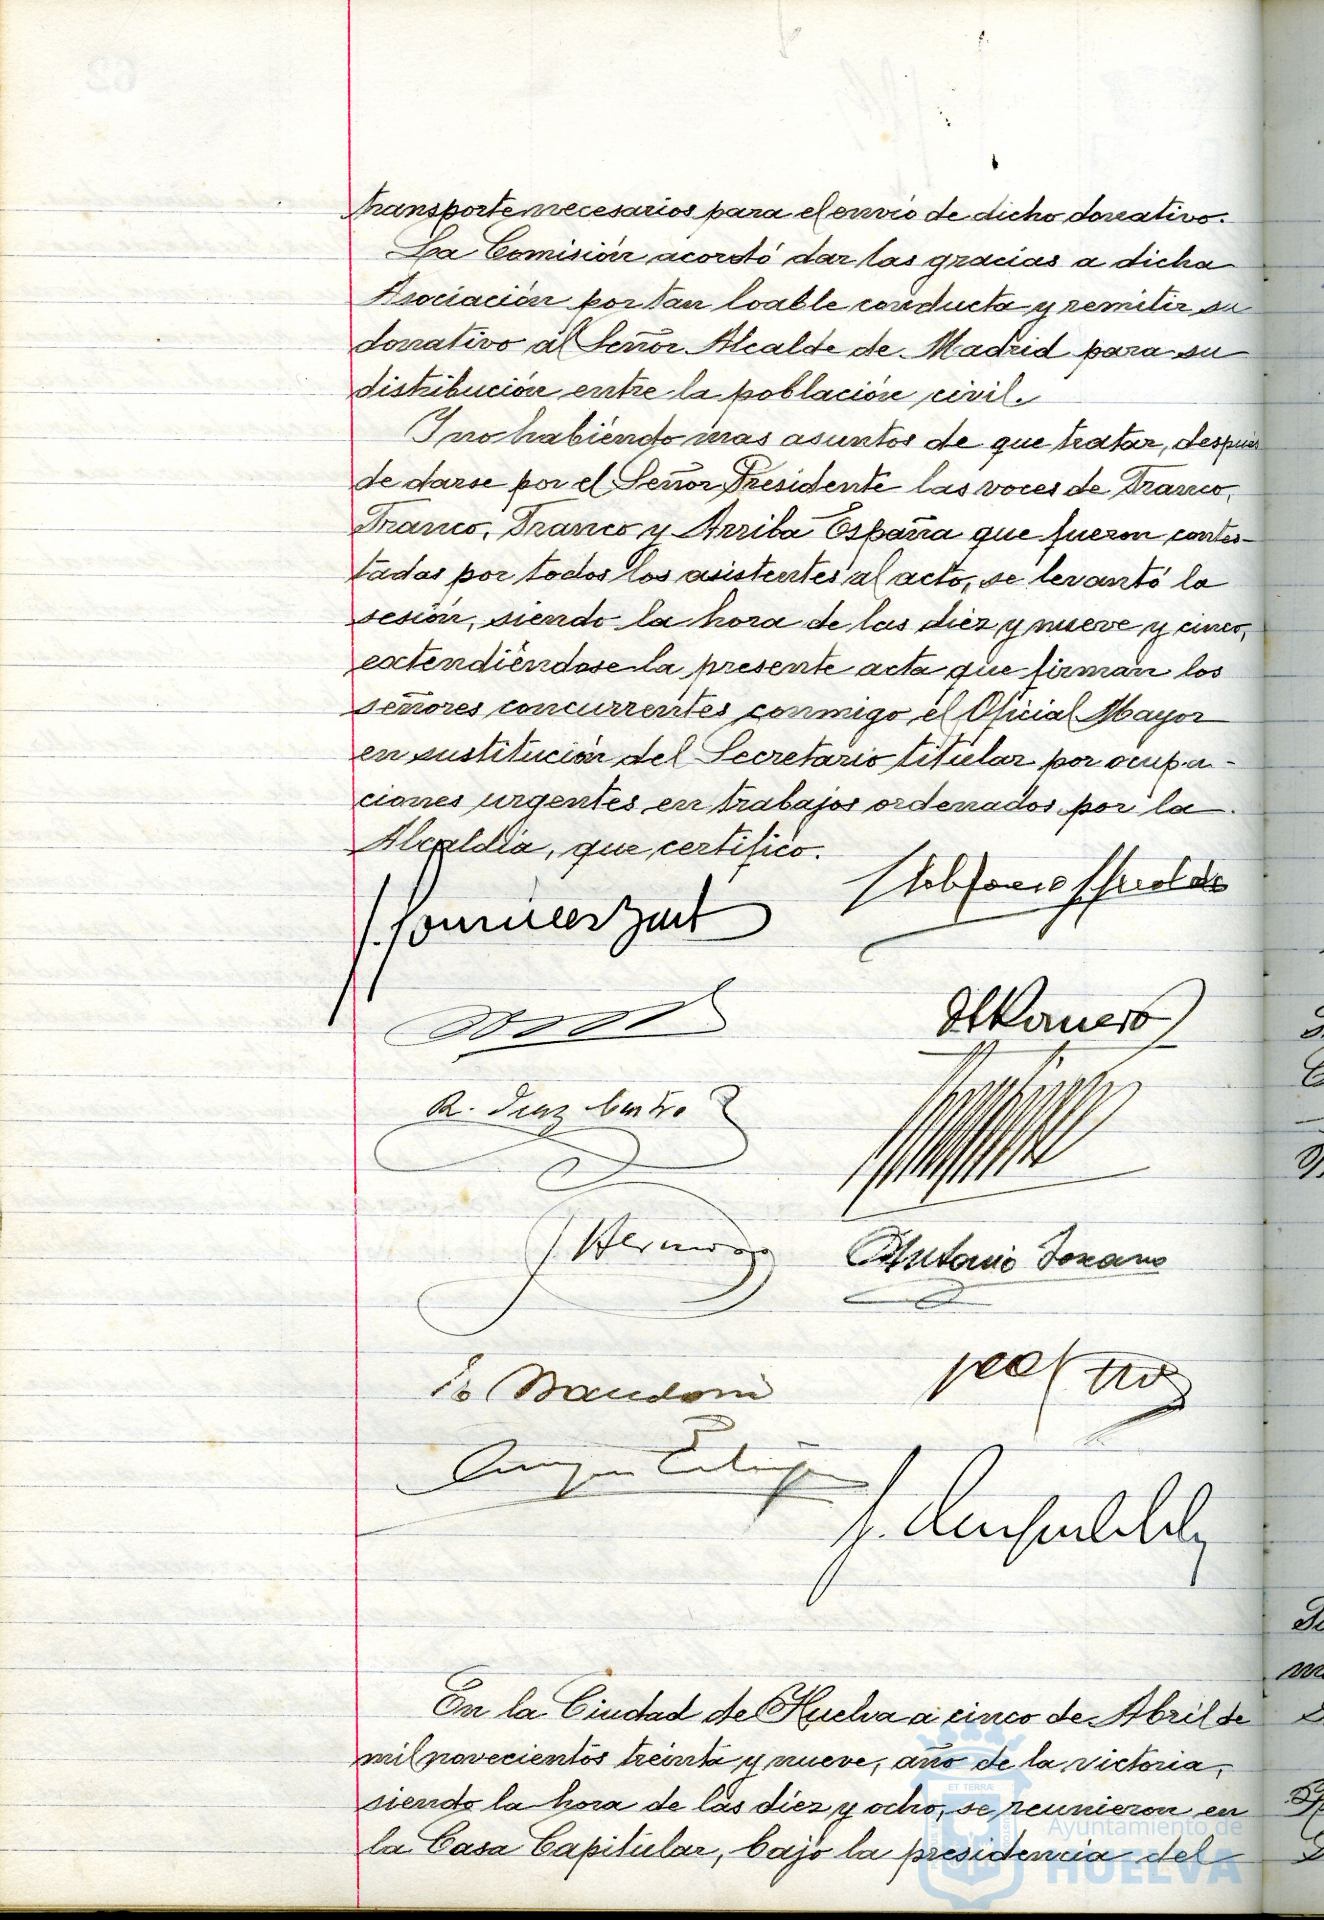 transporte necesarios para el envío de dicho donativo.
La Comisión acordó dar las gracias a dicha
Asociación por tan loable conducta y remitir su
donativo al Señor Alcalde de Madrid para su
distribución entre la población civil.
Y no habiéndo mas asuntos de que tratar, después
de darse por el Señor Presidente las voces de Franco,
Franco, Franco y Arriba España que fueron contes-
tadas por todos los asistentes al acto, se levantó la
sesión, siendo la hora de las diez y nueve y cinco,
extendiéndose la presente acta que firman los
señores concurrentes conmigo el Oficial Mayor
en sustitución del Secretario titular por ocupa-
ciones urgentes en trabajos ordenados por la
Alcaldía, que certifico.
Romero
R. Diaz
Antonio Lozano
En la Ciudad de Huelva a cinco de Abril de
mil novecientos treinta y nueve, año de la victoria,
siendo la hora de las diez y ocho, se reunieron en
la Casa Capitular, bajo la presidencia del
ET TERRÆ
Ayuntamiento de
HUELVA